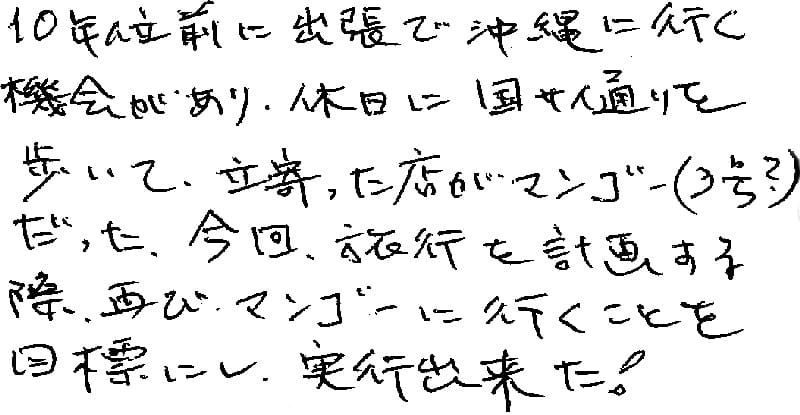 10年位前に出張で沖縄に行く
機会があり、休日に国サイ通りを
歩いて、立寄った店がマンゴー(3号?)
だった、今回、旅行を計画する
際、再び、マンゴーに行くことを
目標にし、実行出来た!